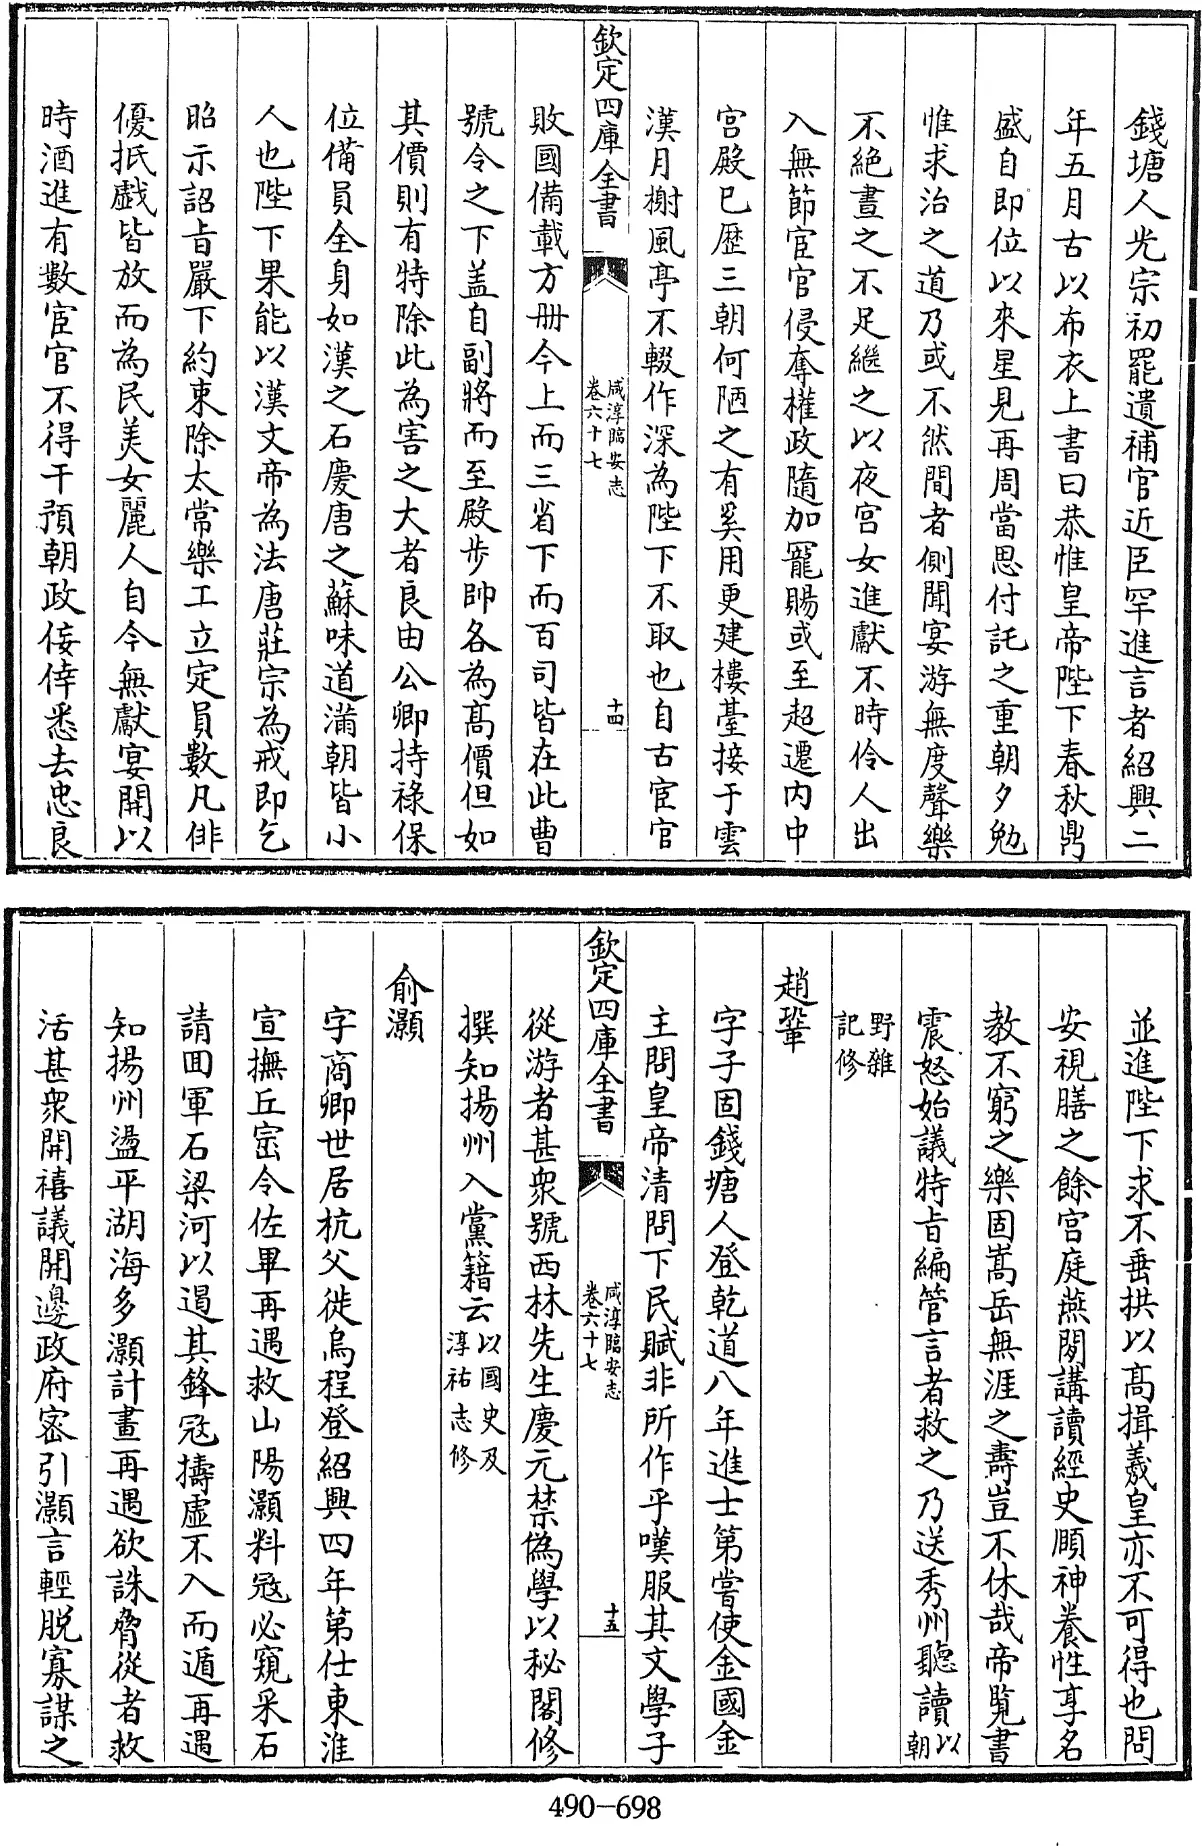 錢塘人光宗初罷遺補官近臣罕進言者紹興二
年五月古以布衣上書曰恭惟皇帝陛下春秋鼎
盛自即位以來星見再周當思付託之重朝夕勉
惟求治之道乃或不然間者側聞宴游無度聲樂
不絕晝之不足繼之以夜宮女進獻不時伶人出
入無節宦官侵奪權政隨加寵賜或至超遷内中
宮殿已歴三朝何陋之有奚用更建樓臺接于雲
漢月榭風亭不輟作深為陛下不取也自古宦官
欽定四庫全書
咸淳臨安志
卷六十七
十四
敗國備載方冊今上而三省下而百司皆在此曹
號令之下盖自副將而至殿步帥各為髙價但如
其價則有特除此為害之大者良由公卿持祿保
位備員全身如漢之石慶唐之蘇味道滿朝皆小
人也陛下果能以漢文帝為法唐莊宗為戒即乞
昭示詔旨嚴下約束除太常樂工立定員數凡俳
優扺戲皆放而為民美女麗人自今無獻宴開以
時酒進有數宦官不得干預朝政佞倖悉去忠良
並進陛下求不垂拱以髙揖羲皇亦不可得也問
安視膳之餘宮庭燕閒講讀經史頤神養性享名
教不窮之樂固嵩岳無涯之壽豈不休哉帝覧書
震怒始議特旨編管言者救之乃送秀州聽讀以
朝
野雜
記修
趙鞏
字子固錢塘人登乾道八年進士第嘗使金國金
主問皇帝清問下民賦非所作乎嘆服其文學子
欽定四庫全書
咸淳臨安志
卷六十七
十五
從游者甚衆號西林先生慶元禁偽學以秘閣修
撰知揚州入黨籍云以國史及
淳祐志修
俞灝
字商卿世居杭父徙烏程登紹興四年第仕東淮
宣撫丘崈令佐畢再遇救山陽灝料冦必窺采石
請囬軍石梁河以遏其鋒冦擣虛不入而遁再遇
知揚州盪平湖海多灝計畫再遇欲誅脅從者救
活甚衆開禧議開邊政府密引灝言輕脱寡謀之
490-698